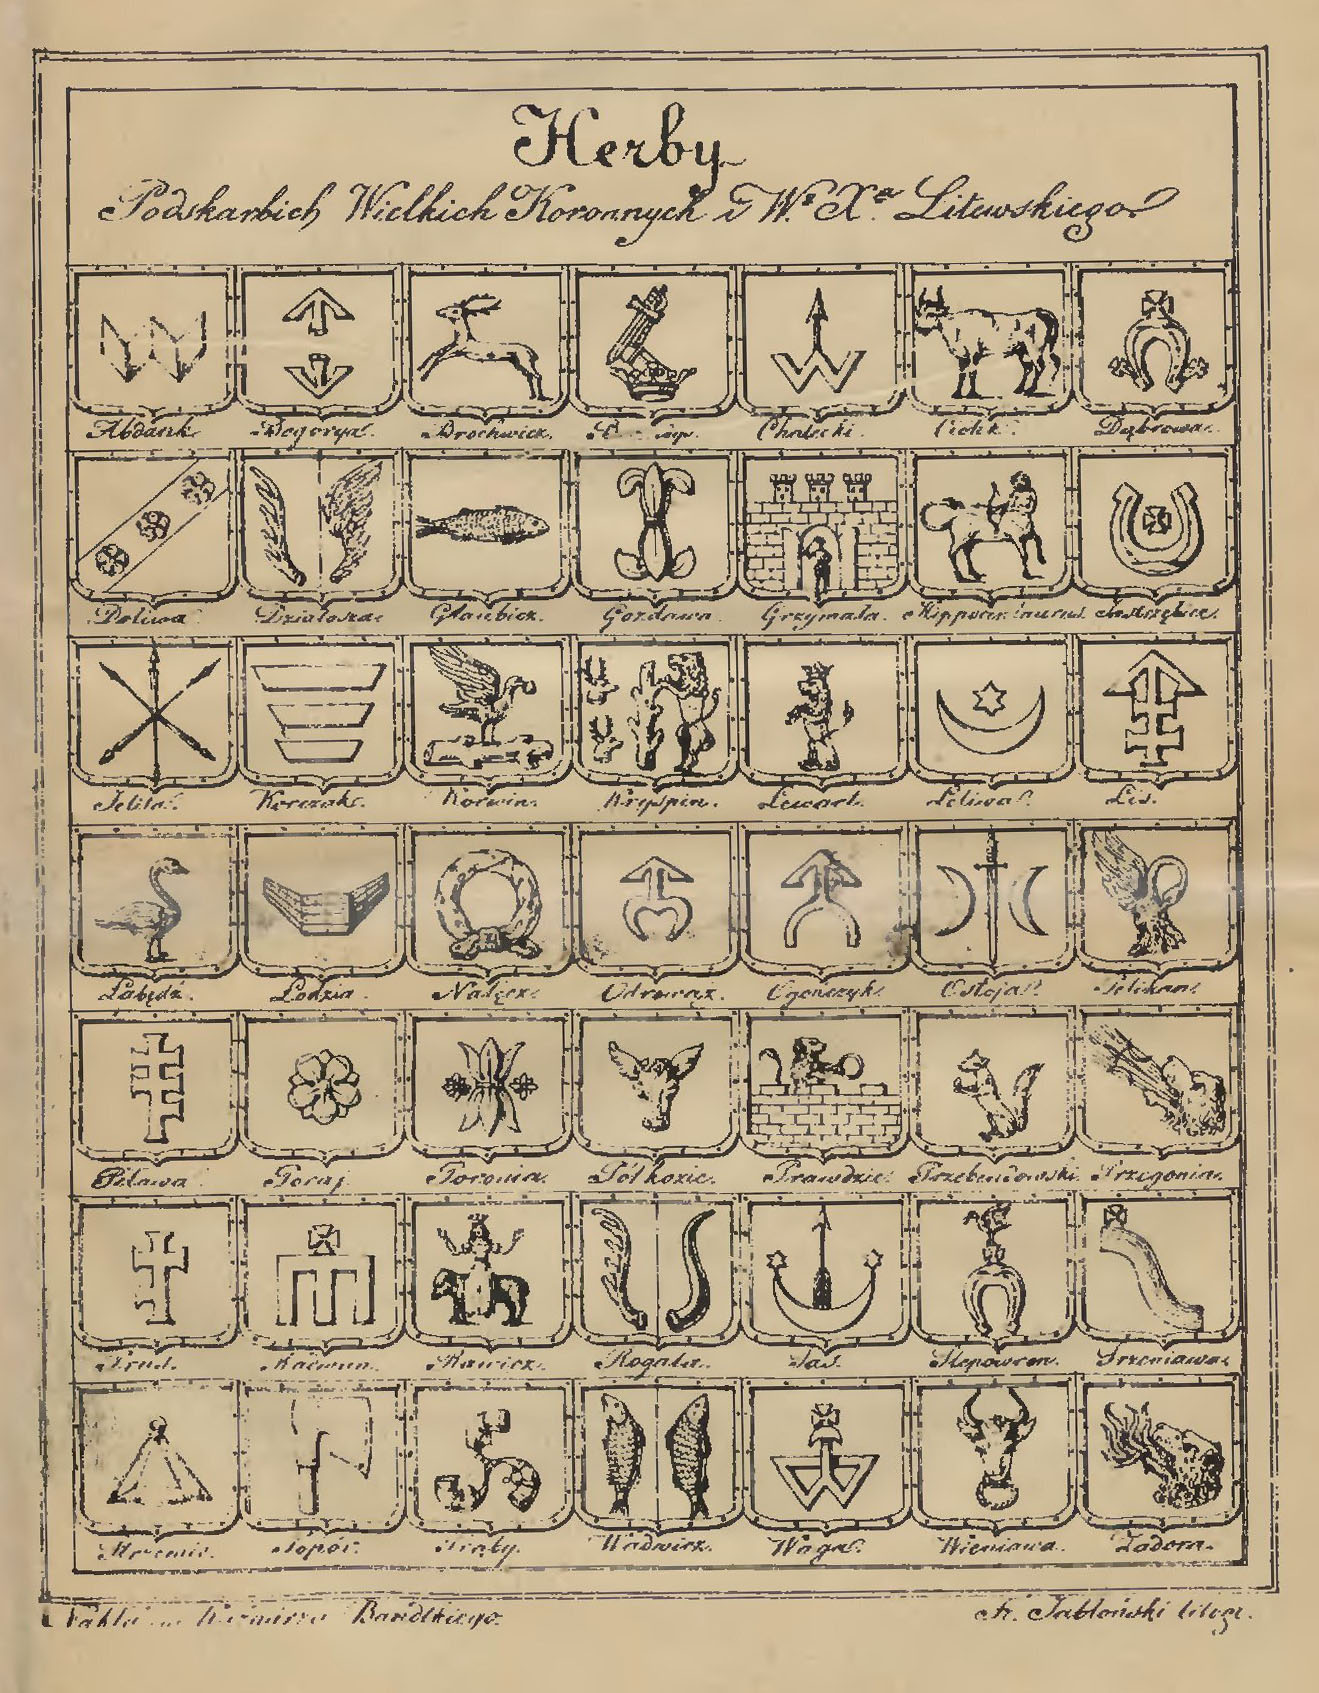 Herby
Podskarbich Wielkich Koronnych i W.º X.ª Litewskiego
Abdank. Bogorya. Brochwicz. Chalecki. Ciołek. Dąbrowa.
Doliwa. Działosza. Głaubicz. Gozdawa. Grzymała. Hippocentaurus. Jastrzębiec.
Jelita. Korczak. Korwin. Kryspin. Lewart. Leliwa. Lis.
Łabędź. Łodzia. Nałęcz. Odrowąż. Ogończyk. Ostoja. Pelikan.
Pilawa. Poraj. Poronia. Półkozic. Prawdzic. Przebendowski. Przegonia.
Prus. Raówan. Rawicz. Rogala. Sas. Slepowron. Srzeniawa.
Strzemię. Topór. Trąby. Wadwicz. Waga. Wieniawa. Zadora.
Zakład Kaźmirza Bandtkiego. Fr. Jabłoński litogr.